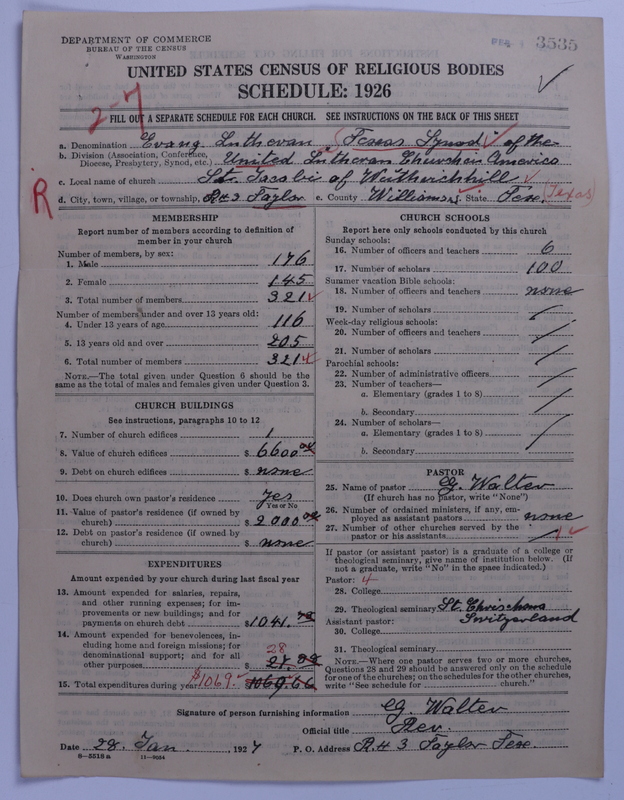 DEPARTMENT OF COMMERCE
BUREAU OF THE CENSUS
WASHINGTON
3535
UNITED STATES CENSUS OF RELIGIOUS BODIES
SCHEDULE: 1926
2-7
FILL OUT A SEPARATE SCHEDULE FOR EACH CHURCH. SEE INSTRUCTIONS ON THE BACK OF THIS SHEET
a. Denomination Evang Lutheran "Texas Synod" of the
b. Division (Association, Conference, Diocese, Presbytery, Synod, etc.) United Lutheran Church in America
c. Local name of church St. Jacobi of
R
d. City, town, village, or township, R#3 Taylor e. County Williams f. State Tex. (Texas)
MEMBERSHIP
Report number of members according to definition of
member in your church
Number of members, by sex:
1. Male 176
2. Female 145
3. Total number of members 321
Number of members under and over 13 years old:
4. Under 13 years of age 116
5. 13 years old and over 205
6. Total number of members 321
NOTE.—The total given under Question 6 should be the
same as the total of males and females given under Question 3.
CHURCH BUILDINGS
See instructions, paragraphs 10 to 12
7. Number of church edifices 1
8. Value of church edifices $ 6600
9. Debt on church edifices $ none
10. Does church own pastor's residence yes
Yes or No
11. Value of pastor's residence (if owned by
church) $ 2000
12. Debt on pastor's residence (if owned by
church) $ none
EXPENDITURES
Amount expended by your church during last fiscal year
13. Amount expended for salaries, repairs,
and other running expenses; for im-
provements or new buildings; and for
payments on church debt $1041.
14. Amount expended for benevolences, in-
cluding home and foreign missions; for
denominational support; and for all
other purposes $
28
15. Total expenditures during year $1069. 1069.66
CHURCH SCHOOLS
Report here only schools conducted by this church
Sunday schools:
16. Number of officers and teachers 6
17. Number of scholars 100
Summer vacation Bible schools:
18. Number of officers and teachers none
19. Number of scholars
Week-day religious schools:
20. Number of officers and teachers
21. Number of scholars
Parochial schools:
22. Number of administrative officers
23. Number of teachers—
a. Elementary (grades 1 to 8)
b. Secondary
24. Number of scholars—
a. Elementary (grades 1 to 8)
b. Secondary
PASTOR
25. Name of pastor G. Walter
(If church has no pastor, write "None")
26. Number of ordained ministers, if any, em-
ployed as assistant pastors none
27. Number of other churches served by the
pastor or his assistants
If pastor (or assistant pastor) is a graduate of a college or
theological seminary, give name of institution below. (If
not a graduate, write "No" in the space indicated.)
Pastor: 4
28. College
29. Theological seminary St. Chrischona
Assistant pastor: Switzerland
30. College
31. Theological seminary
NOTE.—Where one pastor serves two or more churches,
Questions 28 and 29 should be answered only on the schedule
for one of the churches; on the schedules for the other churches,
write "See schedule for church."
Signature of person furnishing information G. Walter
Official title Rev.
Date 28. Jan, 1927 P. O. Address R#3 Taylor Tex.
8-5518 a 11-9034